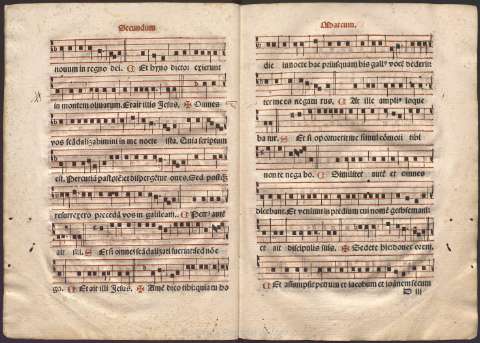 Secundum
novum in regno dei. C Et hyno dicto: exierunt
in montem olivarum. Et ait illis Jesus. ✠ Omnes
vos scãdalizabimini in me nocte ista. Quia scriptum
est. Percutiã pastorẽ: et dispergẽtur oves. Sed postq̃
resurrexero precedã vos in galileam. C Petr' autẽ
ait illi. S Et si omnes scãdalizati fuerint: sed nõ e
go. C Et ait illi Jesus. ✠ Amẽ dico tibi: quia tu ho
Marcum.
die in nocte hac priusquam bis gall' vocẽ dederit:
ter me es negaturus. C At ille ampli' loque
batur. S Et si oportuerit me simul cõmori tibi
non te negabo. C Similiter autẽ et omnes
dicebant. Et veniunt in predium cui nomẽ gethsemani:
et ait discipulis suis. ✠ Sedete hic donec orem.
C Et assumpsit petrum et iacobum et ioãnem secum
D iii